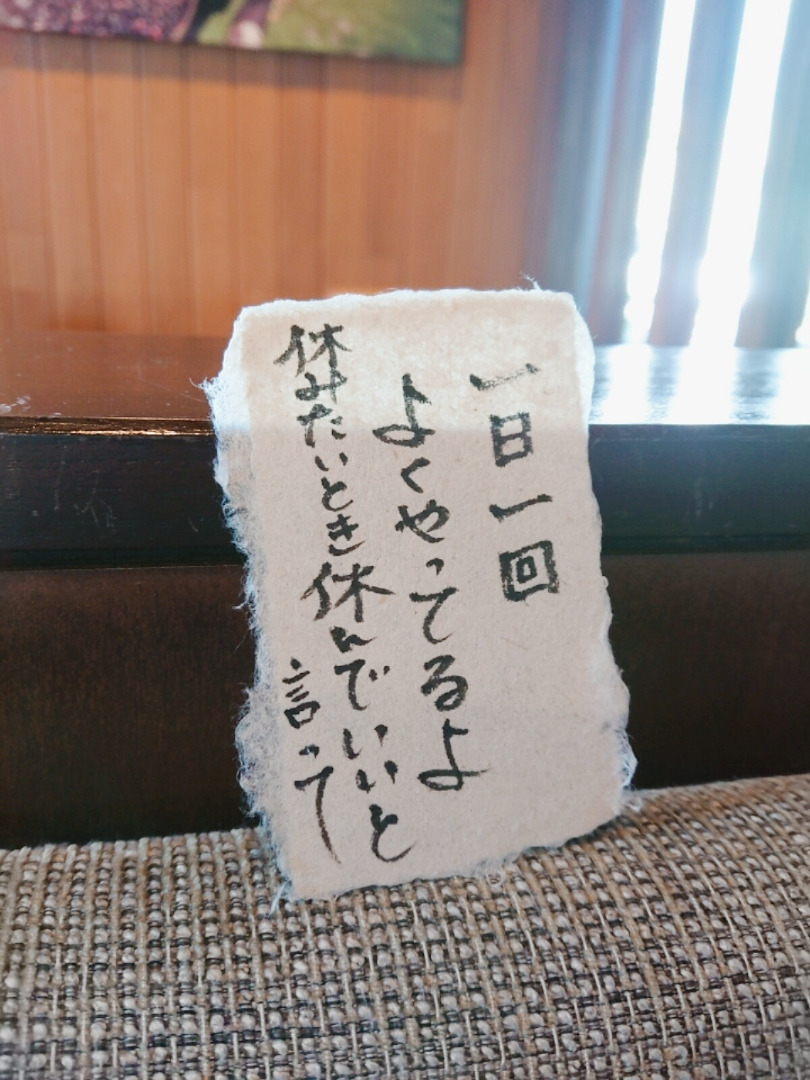 一日一回
よくやってるよ
休みたいとき休んでいいと
言って